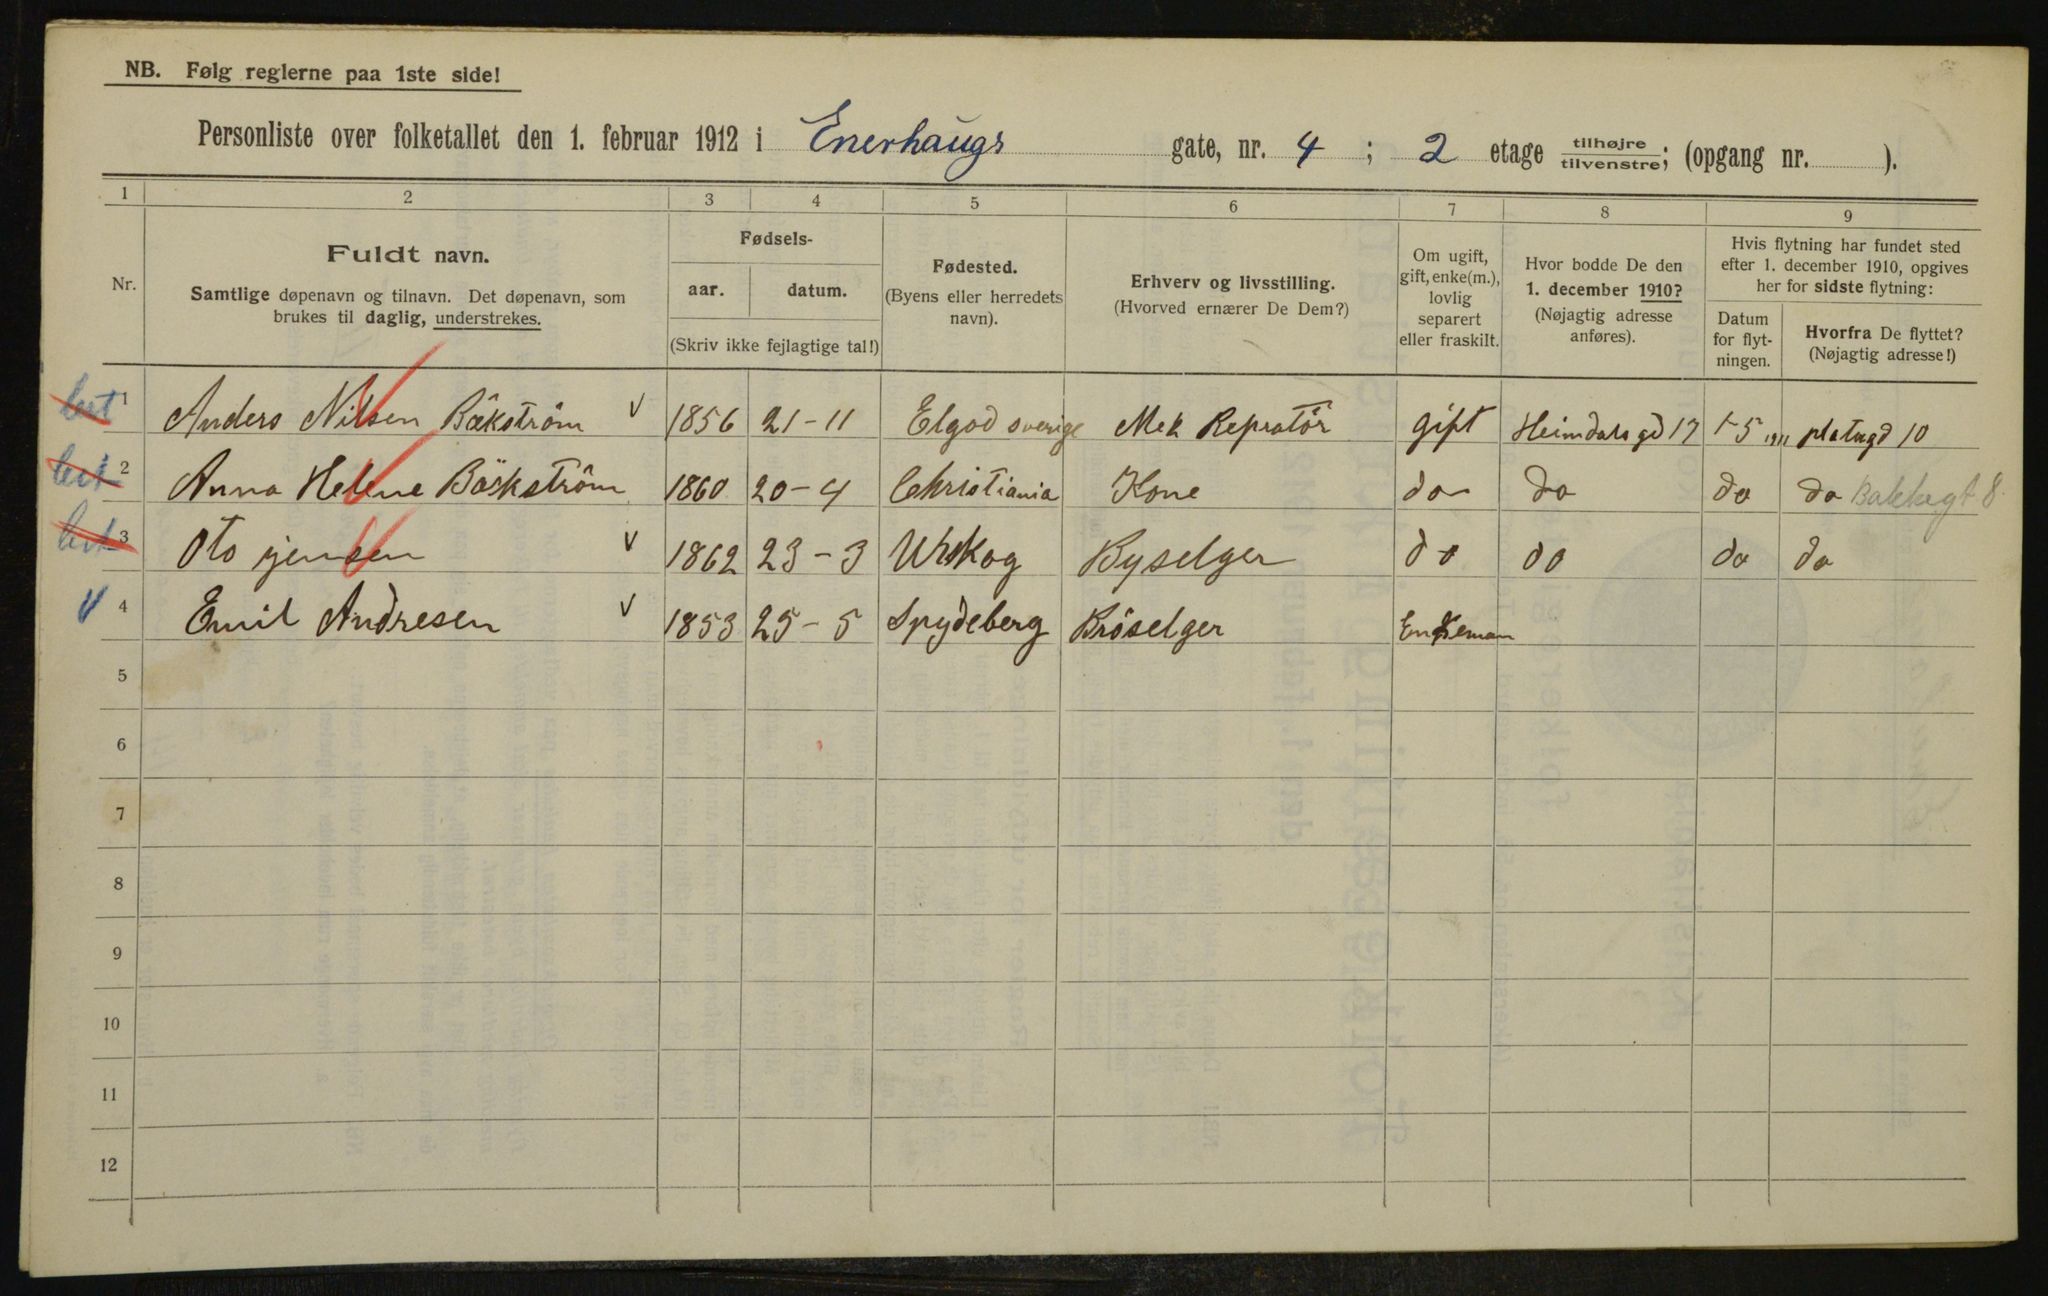 NB. Følg reglerne paa 1ste side!
Personliste over folketallet den 1. februar 1912 i Enerhaugs gate, nr. 4 ; 2 etage tilhøjre tilvenstre; (opgang nr. ).
1 2 3 4 5 6 7 8 9
Nr.
Fuldt navn.
Samtlige døpenavn og tilnavn. Det døpenavn, som
brukes til daglig, understrekes.
Fødsels-
aar. datum.
(Skriv ikke fejlagtige tal!)
Fødested.
(Byens eller herredets
navn).
Erhverv og livsstilling.
(Hvorved ernærer De Dem?)
Om ugift,
gift, enke(m.),
lovlig
separert
eller fraskilt.
Hvor bodde De den
1. december 1910?
(Nøjagtig adresse
anføres).
Hvis flytning har fundet sted
efter 1. december 1910, opgives
her for sidste flytning:
Datum
for flyt-
ningen.
Hvorfra De flyttet?
(Nøjagtig adresse!)
1 Anders Nilsen Bäkström v 1856 21-11 Elgod sverige Mek Repratör gift Heimdals gd 17 1-5 1911 platugd 10
2 Anna Helene Bäckström 1860 20-4 Christiania Kone do do do do
3 Oto jensen v 1862 23-3 Urskog Byselger do do do do
v 4 Emil Andresen v 1853 25-5 Spydeberg Bröselger Enkeman
5
6
7
8
9
10
11
12